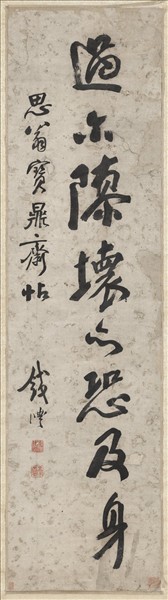 過尔隳壞亦恐及身
思翁寶鼎齋帖
錢灃